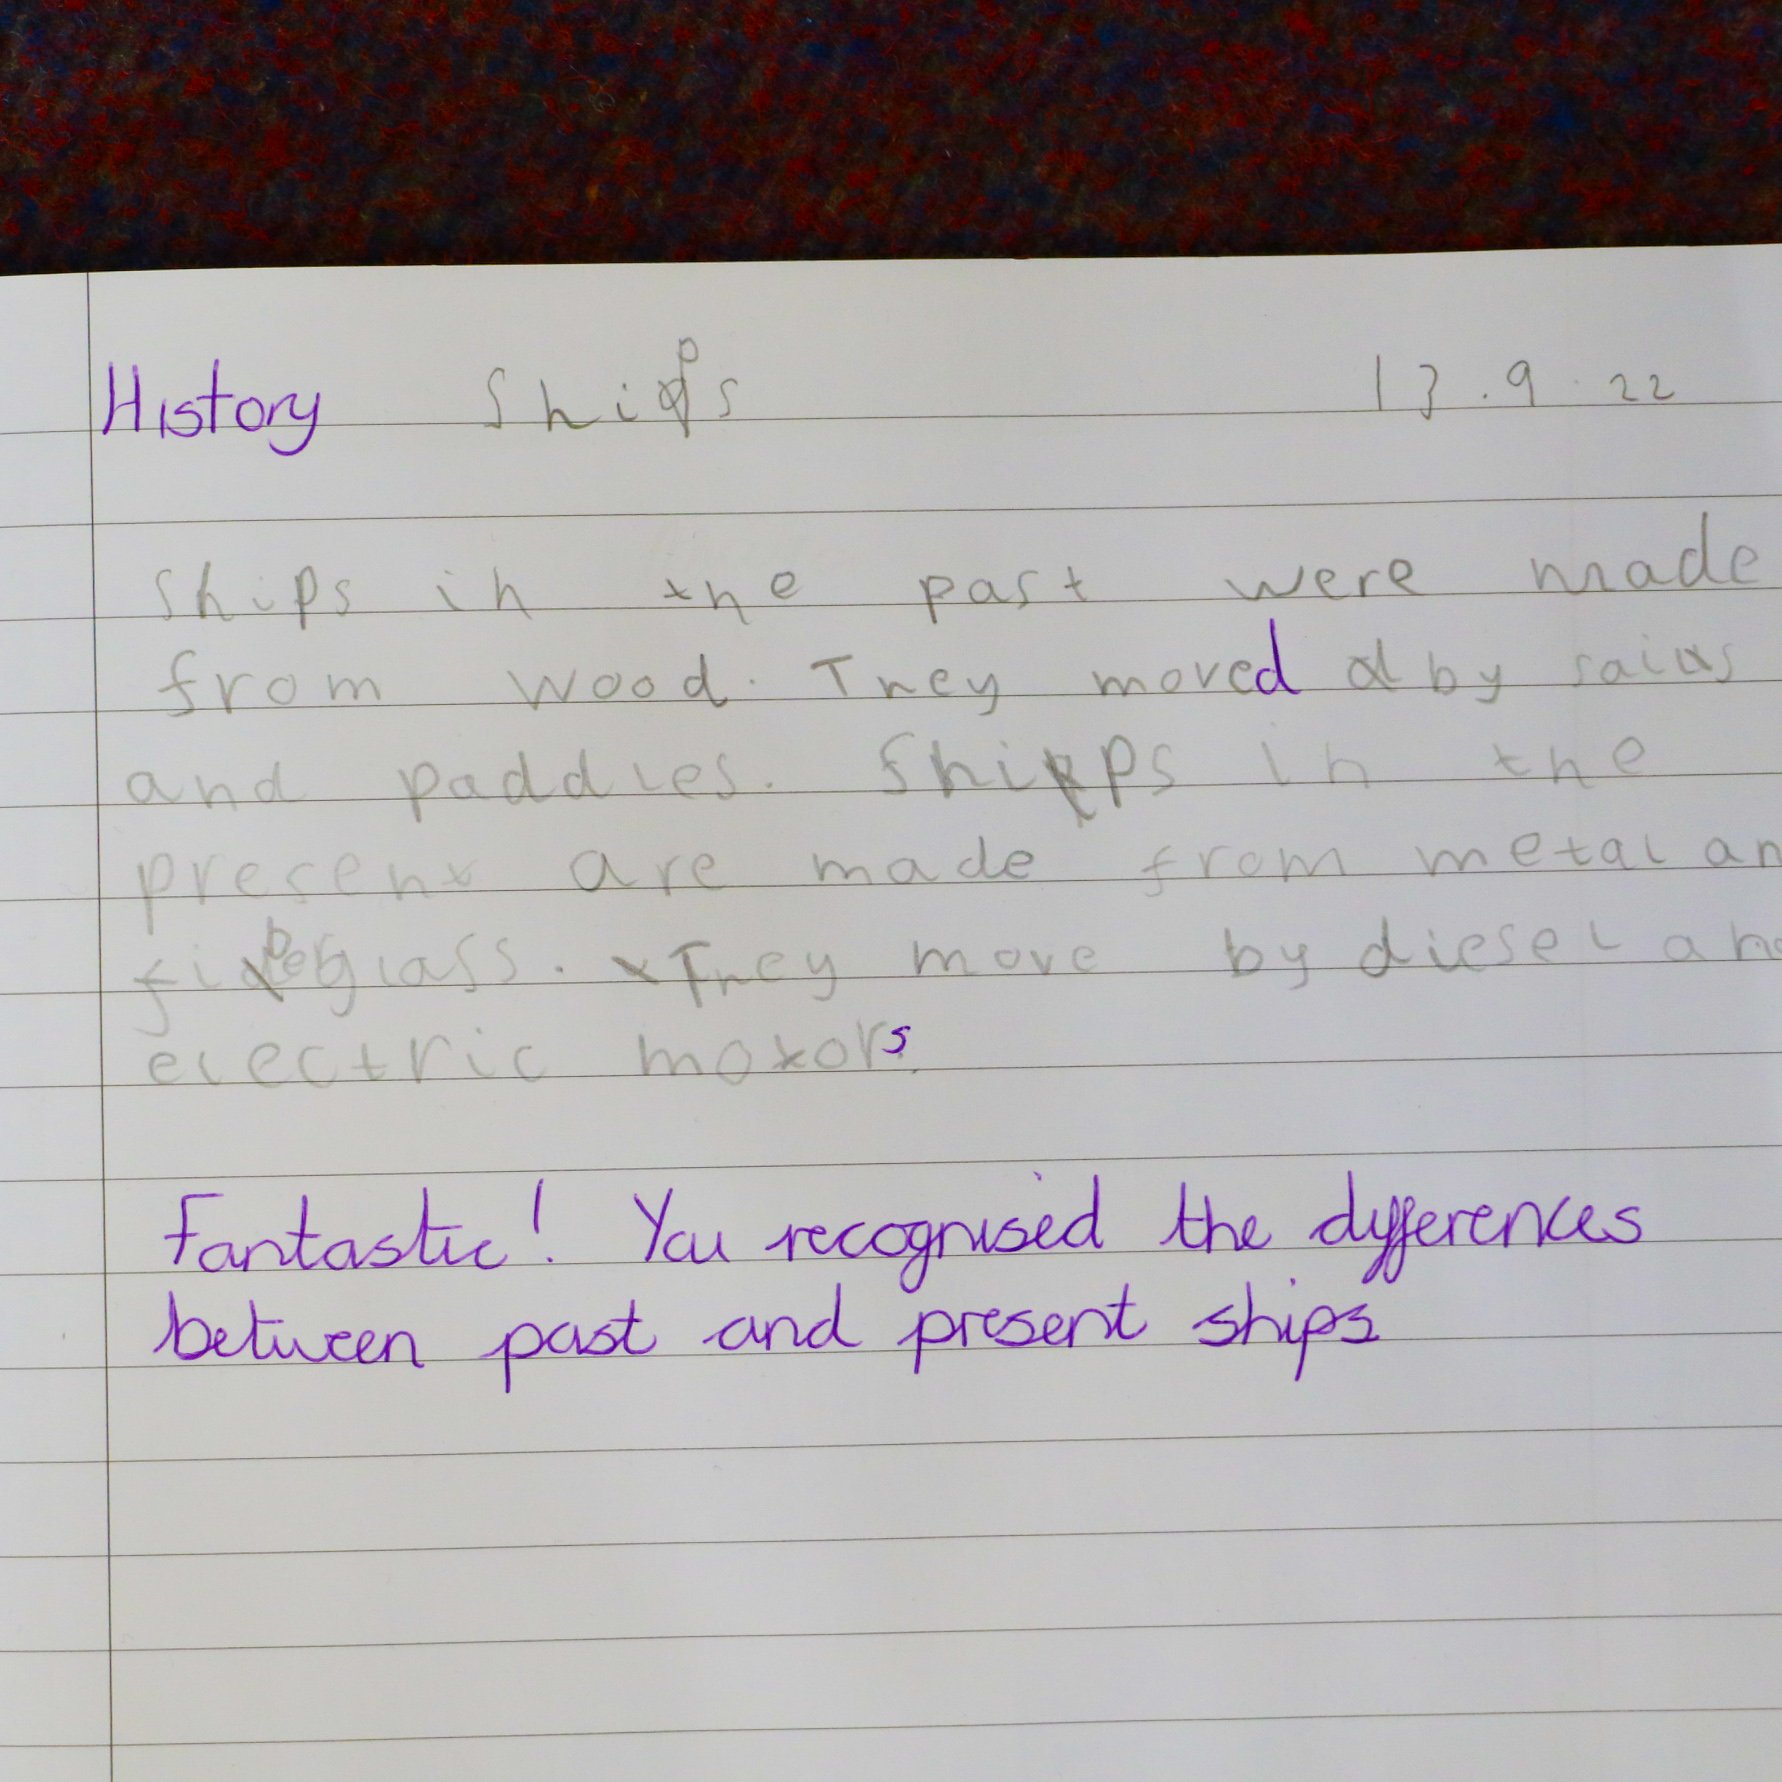 History Ships 13.9.22
Ships in the past were made
from wood. They moved by sails
and paddles. Ships in the
present are made from metal an
fibeglass. They move by diesel and
electric motors.
Fantastic! You recognised the differences
between past and present ships